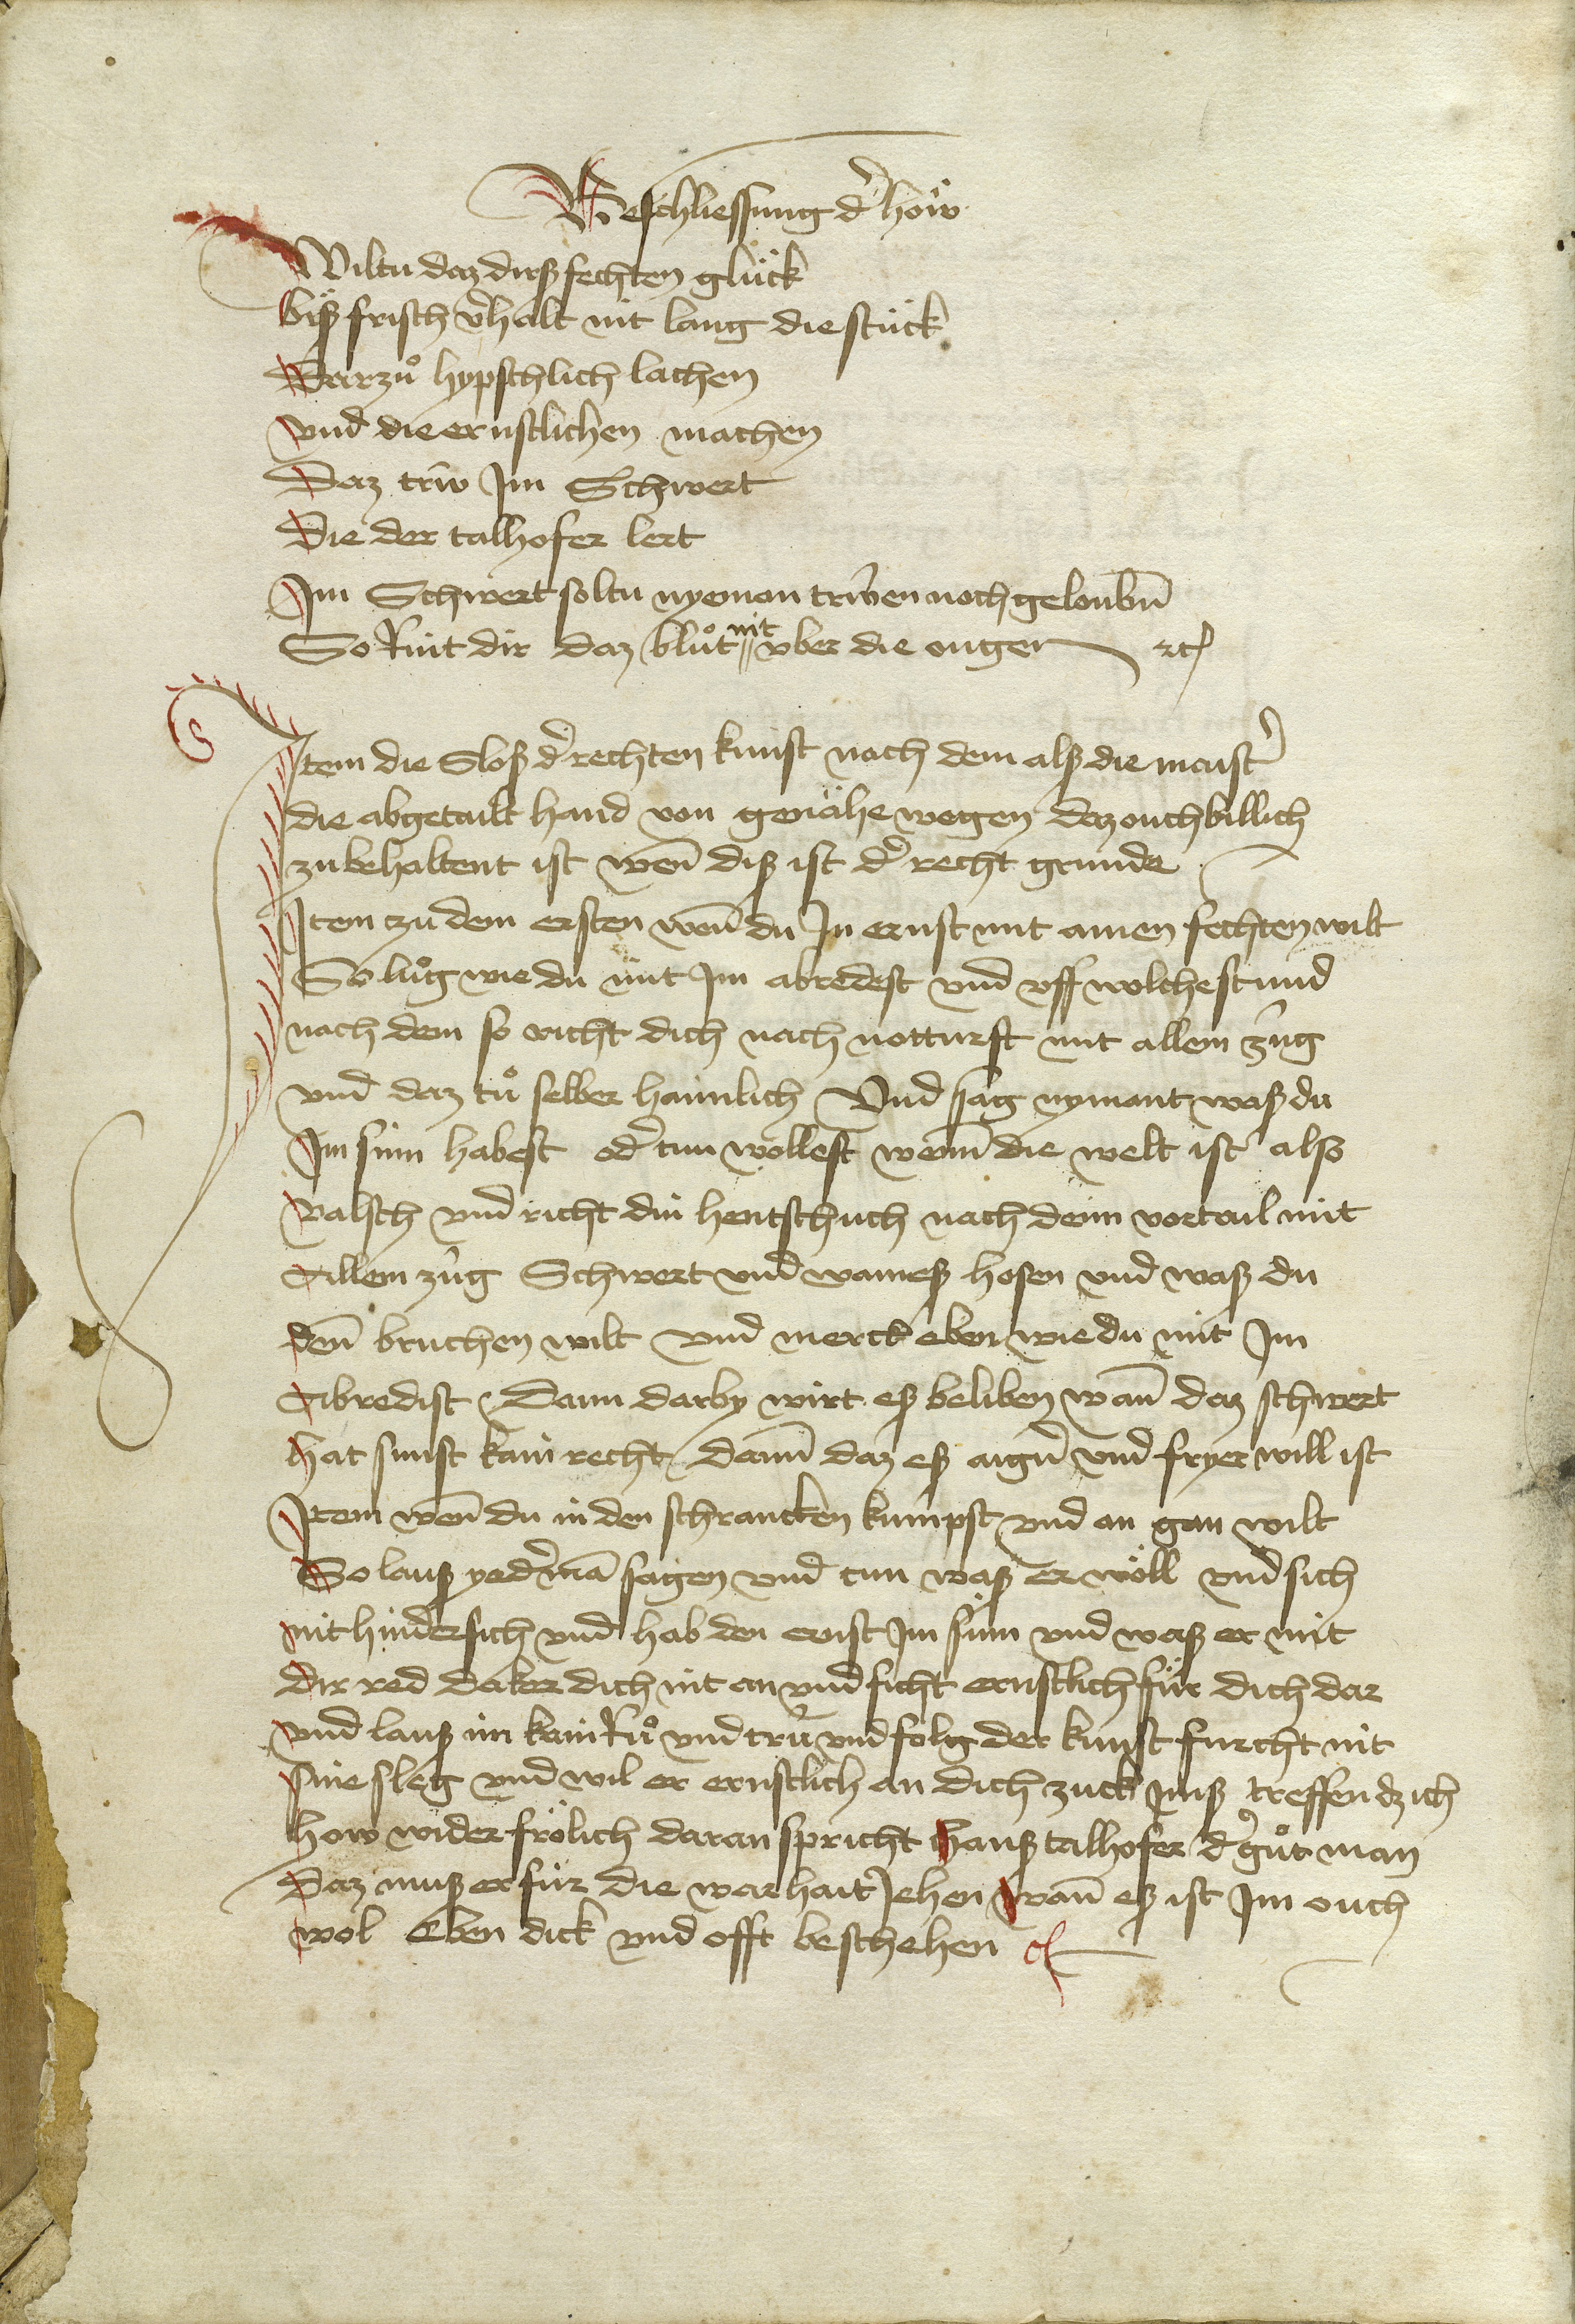 Beschliessung d' höw
Wiltu daz dirß fechten glück
biß frisch v'halt nit lang die stuck
Darzů hypschlich lachen
vnd die ernstlichen machen
Daz trw Im Schwert
Die der talhofer lert
Im Schwert soltu nyeman trẅen noch geloubn̄
So Rint dir daz blůt nit vber die ougen ⁊c
Item die Sloß d' rechten kunst nach dem alß die maist'
die abgetailt hand von genähe wegen daz ouch billich
zu behaltent ist wen̄ diß ist d' recht grunde
Item zu dem ersten wen̄ du In ernst mit ainen fechten wilt
So lůg wie du mit Im abredest vnd vff wolche stund
nach dem so richt dich nach notturft mit allem züg
vnd daz tů selber haimlich Vnd sag nymant waß du
Im sinn habest od' tun wöllest wenn̄ die welt ist also
valsch vnd richt din hentschuch nach deim vortail mit
Allem züg Schwert vnd wameß hosen vnd waß du
den̄ bruchen wilt vnd merck eben wie du mit Im
Abredist Dann darby wirt eß beliben wan̄ daz schwert
hat sunst kain recht dann̄ daz eß aign' vnd fryer will ist
Item wen̄ du in den schrancken kumpst vnd an gan wilt
So lauß yed'mā sagen vnd tun waß er wöll vnd sich
nit hindersich vnd hab den ernst Im sinn vnd waß er mit
dir red daker dich nit an vnd ficht ernstlich für dich dar
vnd lauß im kain Rů vnd trü vnd folg der kunst furcht nit
sine sleg vnd wil er ernstlich an dich zuck Imß treffen dz ich
how wider frölich daran spricht Hanß talhofer d' gůt man
Daz muß er für die warhait Jehen wan̄ eß ist Im ouch
wol Eben dick vnd offt beschehen ⁊c